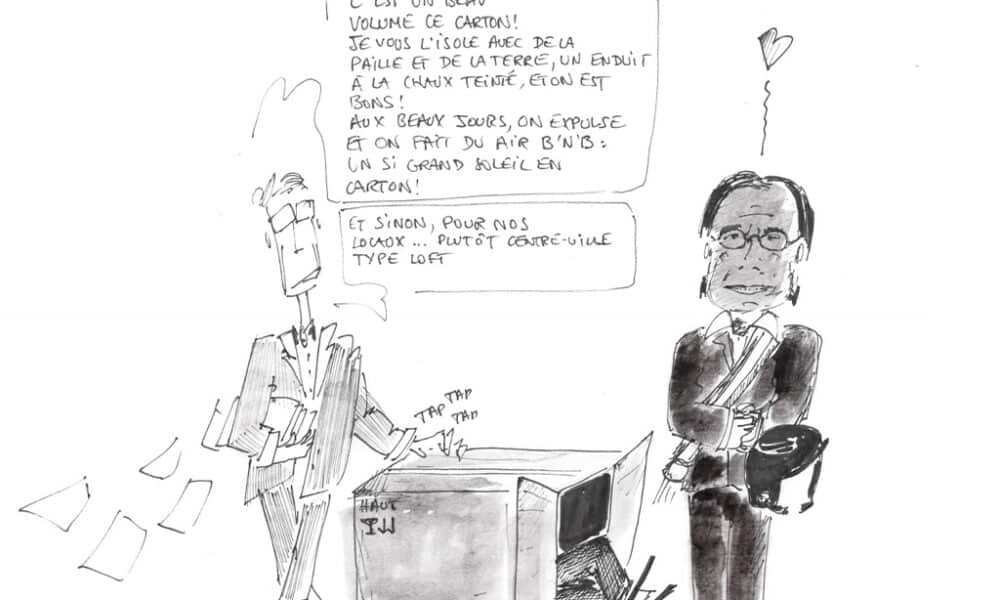 C'EST UN BEAU
VOLUME CE CARTON!
JE VOUS L'ISOLE AVEC DE LA
PAILLE ET DE LA TERRE, UN ENDUIT
À LA CHAUX TEINTÉ, ET ON EST
BONS!
AUX BEAUX JOURS, ON EXPULSE
ET ON FAIT DU AIR B'N'B:
UN SI GRAND SOLEIL EN
CARTON!
ET SINON, POUR NOS
LOCAUX... PLUTÔT CENTRE-VILLE
TYPE LOFT
TAP TAP
TAP
HAUT